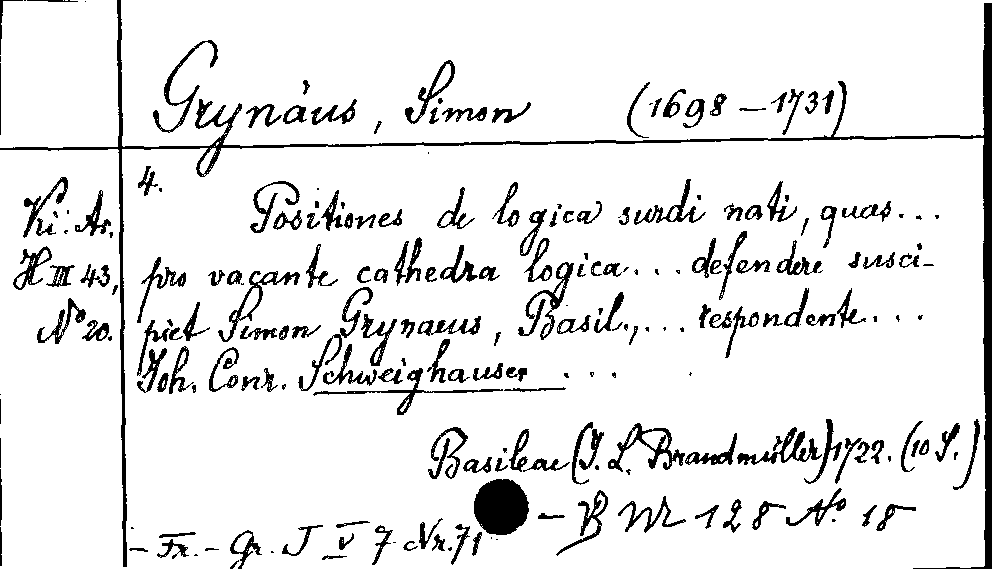 Grynäus, Simon (1698–1731)
4.
Ki: Ar.
H III 43,
No 20.
Positiones de logica surdi nati, quas...
pro vacante cathedra logica... defendere susci-
piet Simon Grynaeus, Basil.,... respondente...
Joh. Conr. Schweighauser ...
Basileae (J. L. Brandmüller) 1722. (10 S.)
– Fr.-Gr. J V 7 Nr. 71
– B Nr 128 No 18